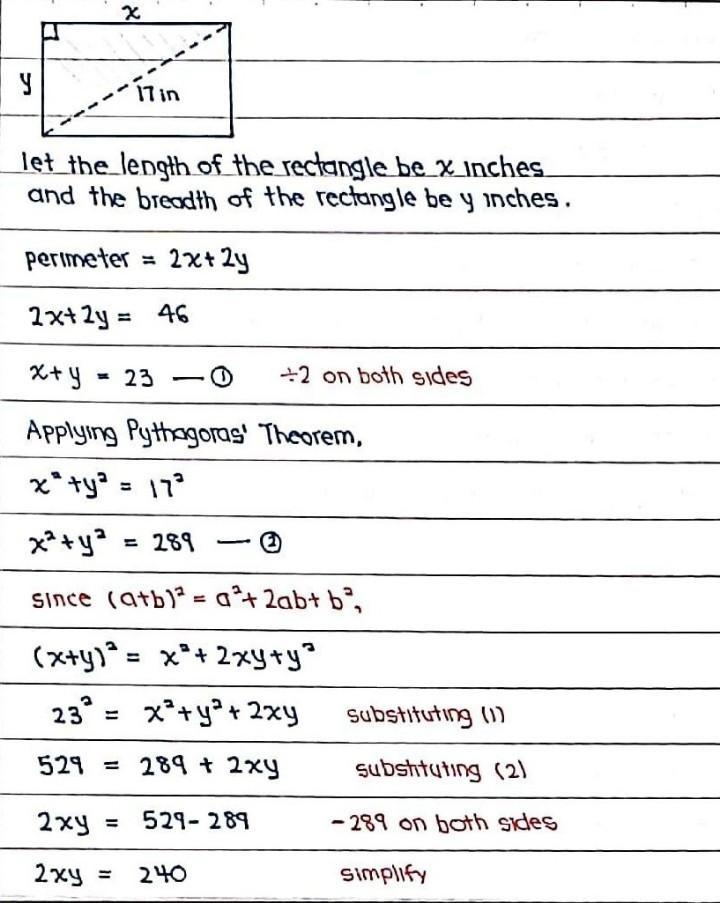 x
y
17 in
let the length of the rectangle be x inches
and the breadth of the rectangle be y inches.
perimeter = 2x+2y
2x+2y = 46
x+y = 23 — ① ÷2 on both sides
Applying Pythagoras' Theorem,
x²+y² = 17²
x²+y² = 289 — ②
since (a+b)² = a²+2ab+b²,
(x+y)² = x²+2xy+y²
23² = x²+y²+2xy substituting (1)
529 = 289 + 2xy substituting (2)
2xy = 529-289 -289 on both sides
2xy = 240 simplify